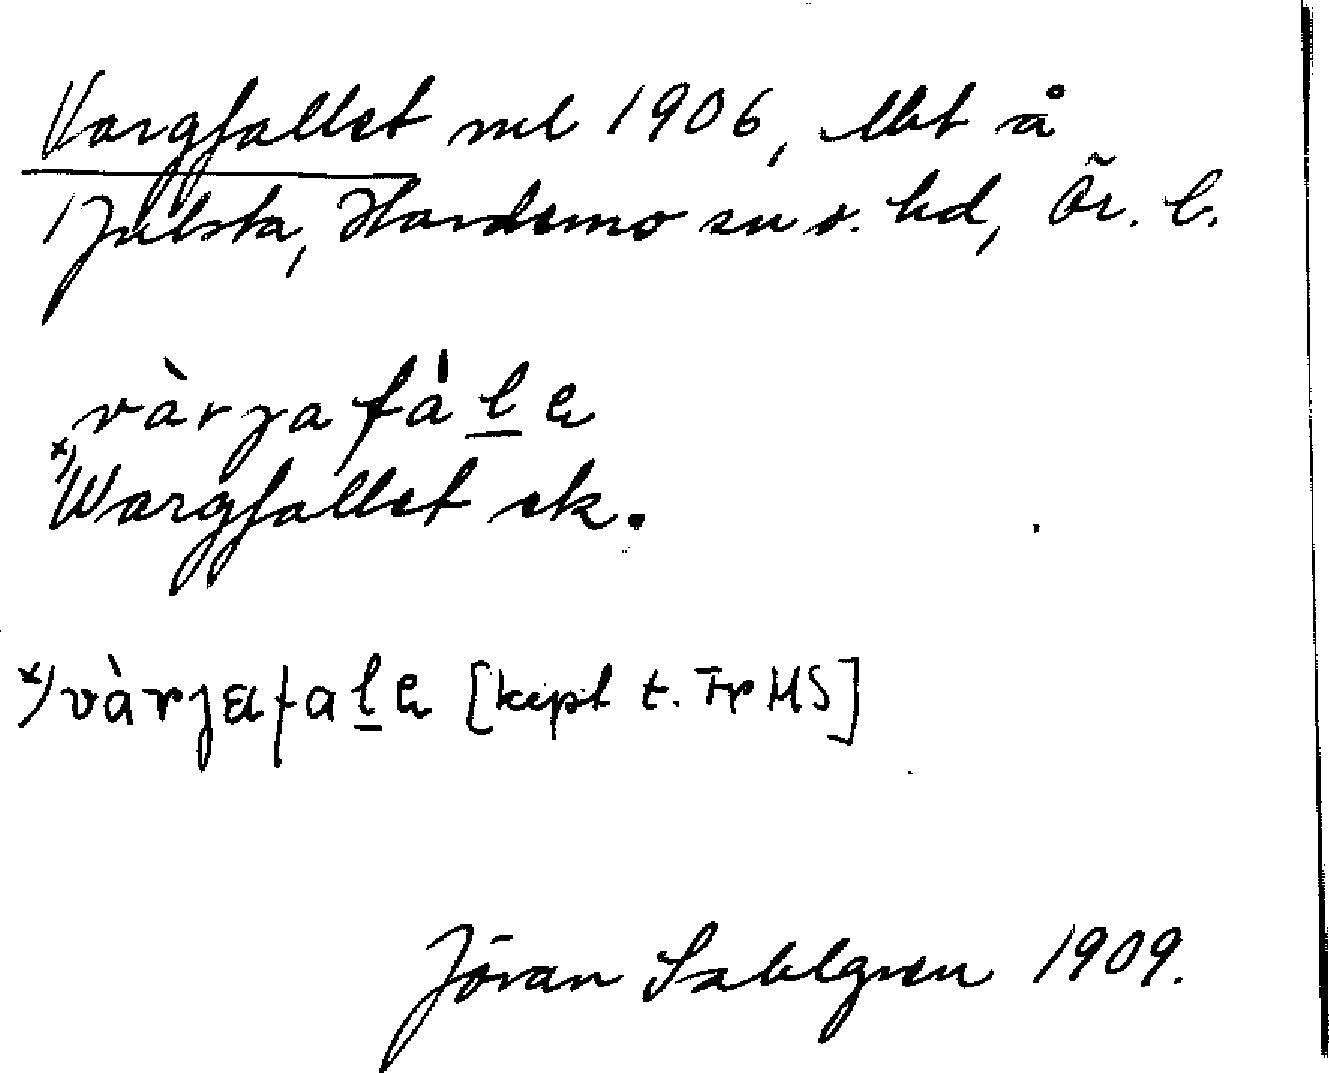 Vargfallet ml 1906, lht å
1 Julsta, Hardemo sn o. hd, Ör. l.
vàrgafàlɛ
x) Wargfallet ek.
x) vàrgafalɛ [kept t. Fr MS]
Jöran Sahlgren 1909.